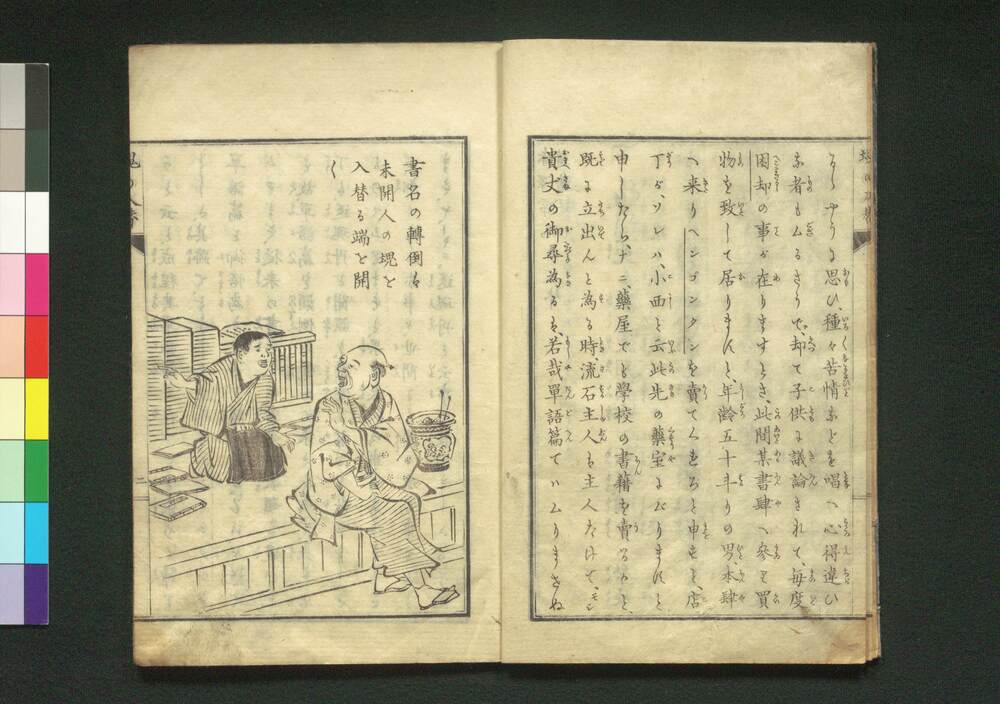 そしやうに思ひ、種々苦情などを唱へ心得違ひ
な者もムるさうで、却て子供に議論されて、毎度
困却の事が在りますとさ、此間某書肆へ參り買
物を致して居りますと、年齢五十斗りの男、本肆
へ来りヘンゴンタンを賣てくださろと申すと、店
丁が、ソレハ、小西と云此先の藥室よりますと
申したら、ナニ藥屋で學校の書籍を賣るかと、
既に立出んと為る時、流石主人も主人だけで、モシ
貴丈の御尋為るは、若哉單語篇てハムりませぬ
書名の轉倒も
未開人の塊を
入替る端を開
く